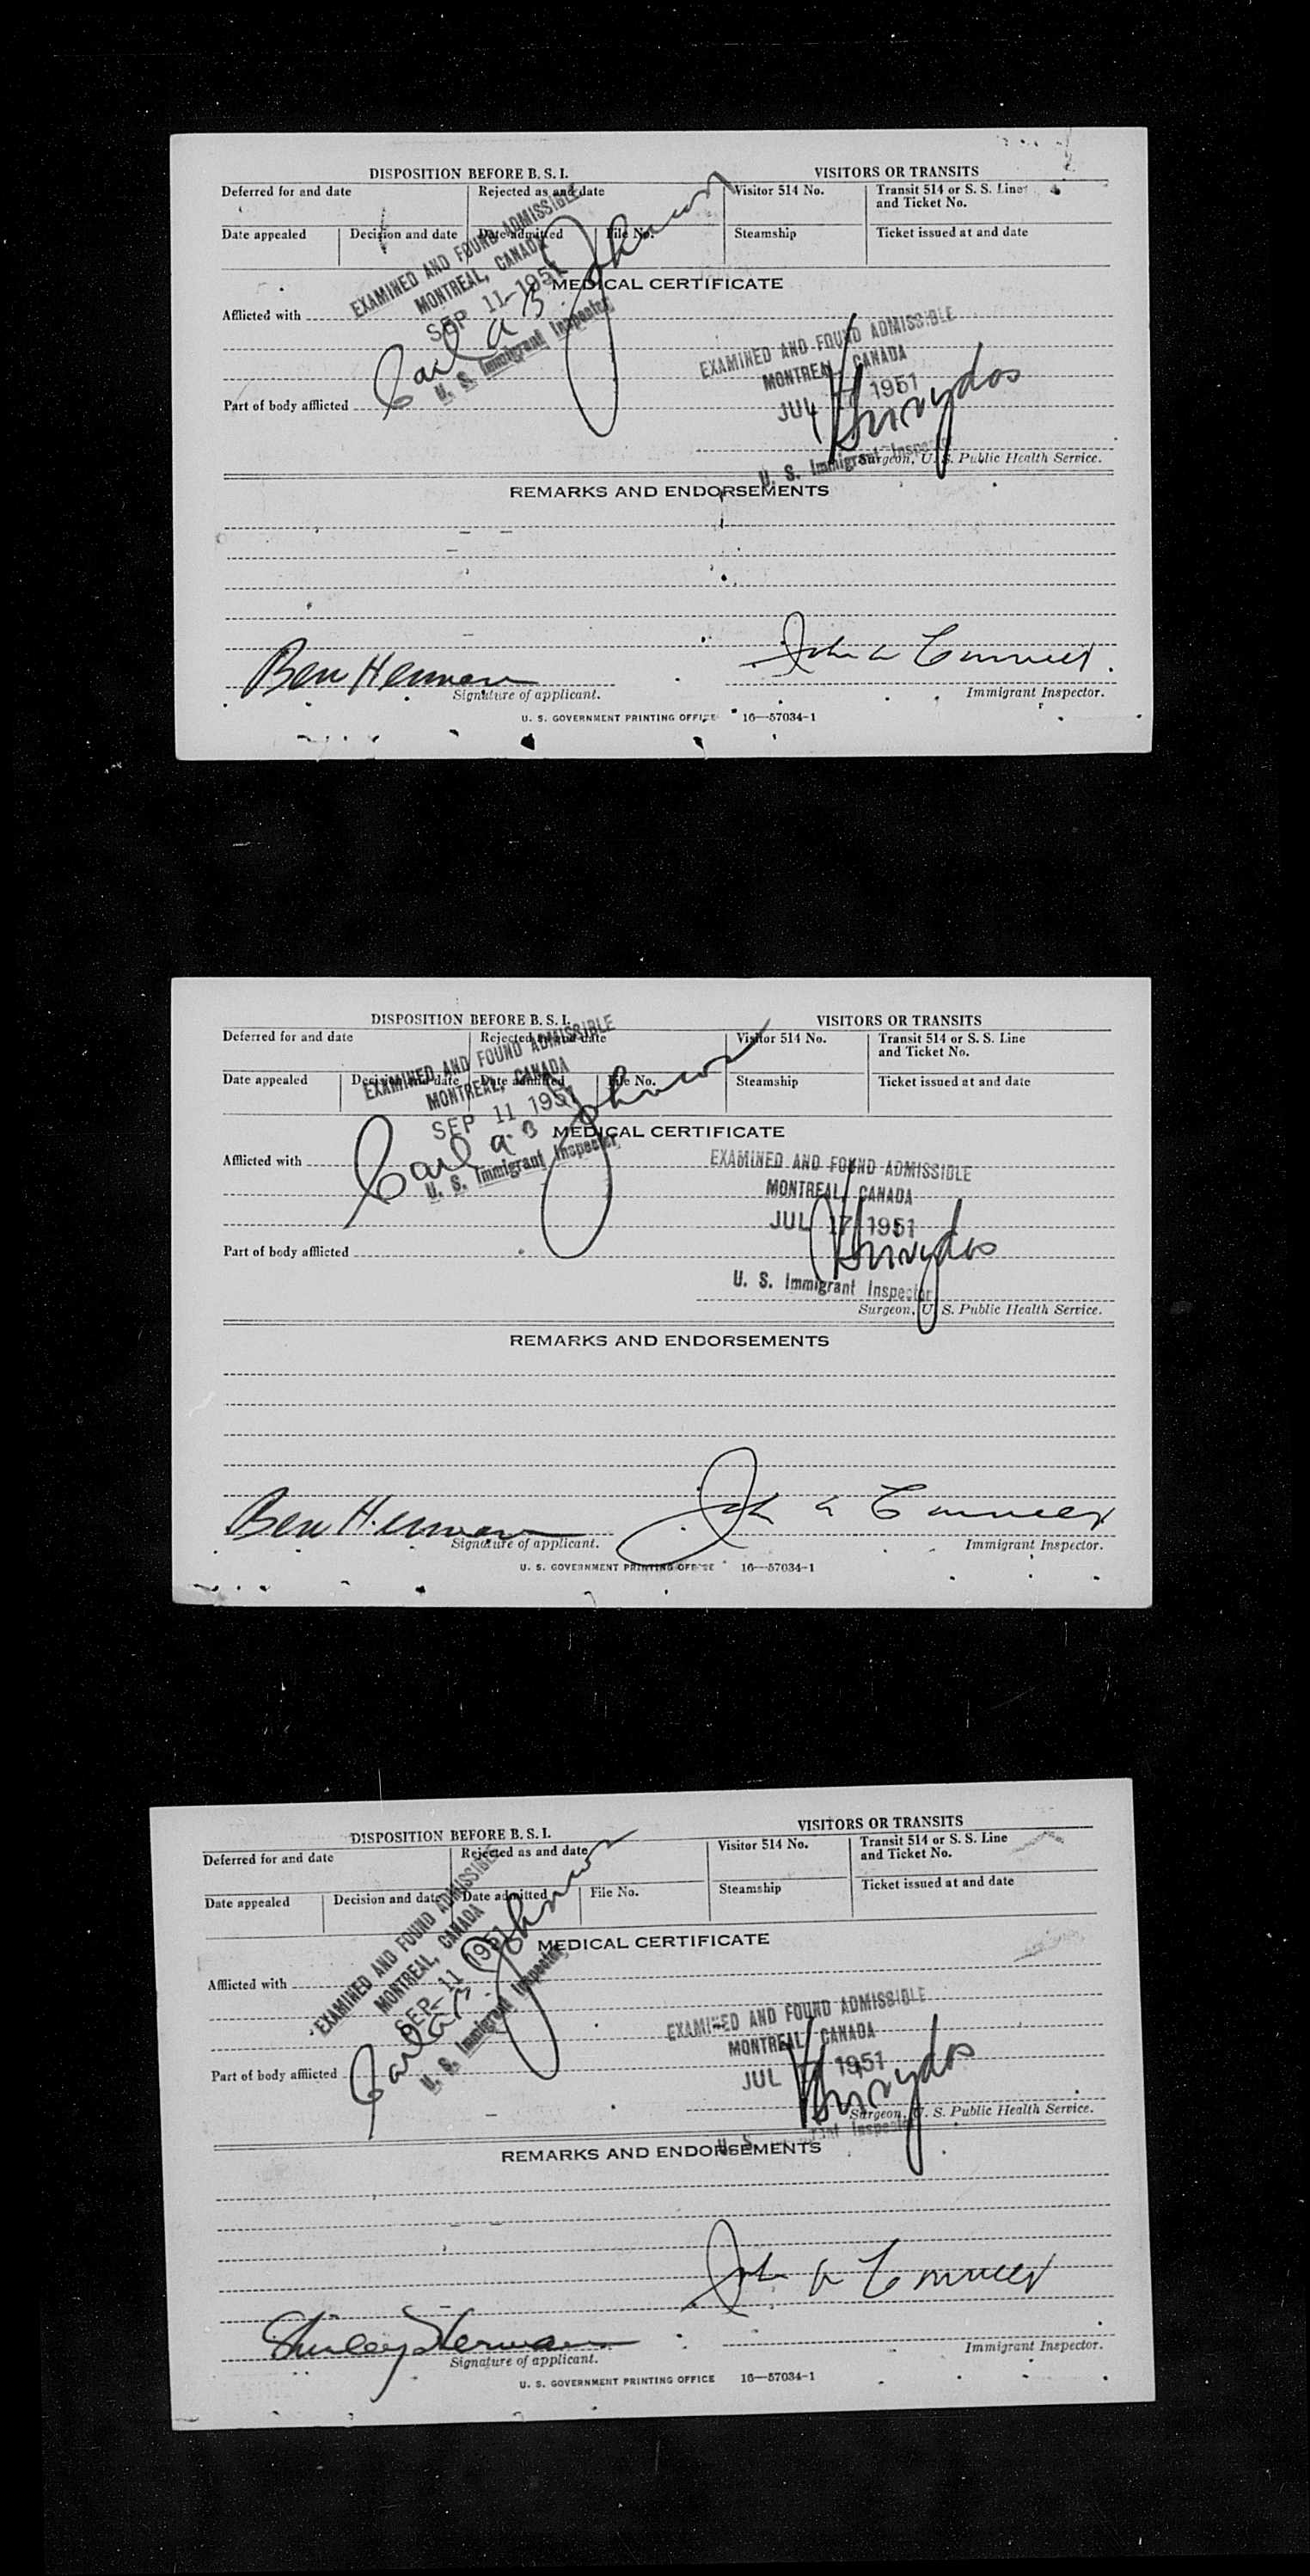 DISPOSITION BEFORE B. S. I.
VISITORS OR TRANSITS
Deferred for and date
Rejected as and date
Visitor 514 No.
Transit 514 or S. S. Line
and Ticket No.
Date appealed
Decision and date
Date admitted
File No.
Steamship
Ticket issued at and date
EXAMINED AND FOUND ADMISSIBLE
MONTREAL, CANADA
SEP 11 1951
Carl A B Johnson
U. S. Immigrant Inspector
MEDICAL CERTIFICATE
Afflicted with
EXAMINED AND FOUND ADMISSIBLE
MONTREAL, CANADA
JUL 1951
Part of body afflicted
U. S. Immigrant Inspector
Surgeon, U. S. Public Health Service.
REMARKS AND ENDORSEMENTS
Ben Herman
John
Signature of applicant.
Immigrant Inspector.
U. S. GOVERNMENT PRINTING OFFICE 16—57034-1
DISPOSITION BEFORE B. S. I.
VISITORS OR TRANSITS
Deferred for and date
Rejected as and date
Visitor 514 No.
Transit 514 or S. S. Line
and Ticket No.
Date appealed
Decision and date
Date admitted
File No.
Steamship
Ticket issued at and date
EXAMINED AND FOUND ADMISSIBLE
MONTREAL, CANADA
SEP 11 1951
Carl A B Johnson
U. S. Immigrant Inspector
MEDICAL CERTIFICATE
Afflicted with
EXAMINED AND FOUND ADMISSIBLE
MONTREAL, CANADA
JUL 17 1951
Part of body afflicted
U. S. Immigrant Inspector
Surgeon, U. S. Public Health Service.
REMARKS AND ENDORSEMENTS
Ben Herman
John
Signature of applicant.
Immigrant Inspector.
U. S. GOVERNMENT PRINTING OFFICE 16—57034-1
DISPOSITION BEFORE B. S. I.
VISITORS OR TRANSITS
Deferred for and date
Rejected as and date
Visitor 514 No.
Transit 514 or S. S. Line
and Ticket No.
Date appealed
Decision and date
Date admitted
File No.
Steamship
Ticket issued at and date
EXAMINED AND FOUND ADMISSIBLE
MONTREAL, CANADA
SEP 11 1951
Carl A B Johnson
U. S. Immigrant Inspector
MEDICAL CERTIFICATE
Afflicted with
EXAMINED AND FOUND ADMISSIBLE
MONTREAL, CANADA
JUL 1951
Part of body afflicted
Surgeon, U. S. Public Health Service.
REMARKS AND ENDORSEMENTS
John
Shirley Herman
Signature of applicant.
Immigrant Inspector.
U. S. GOVERNMENT PRINTING OFFICE 16—57034-1